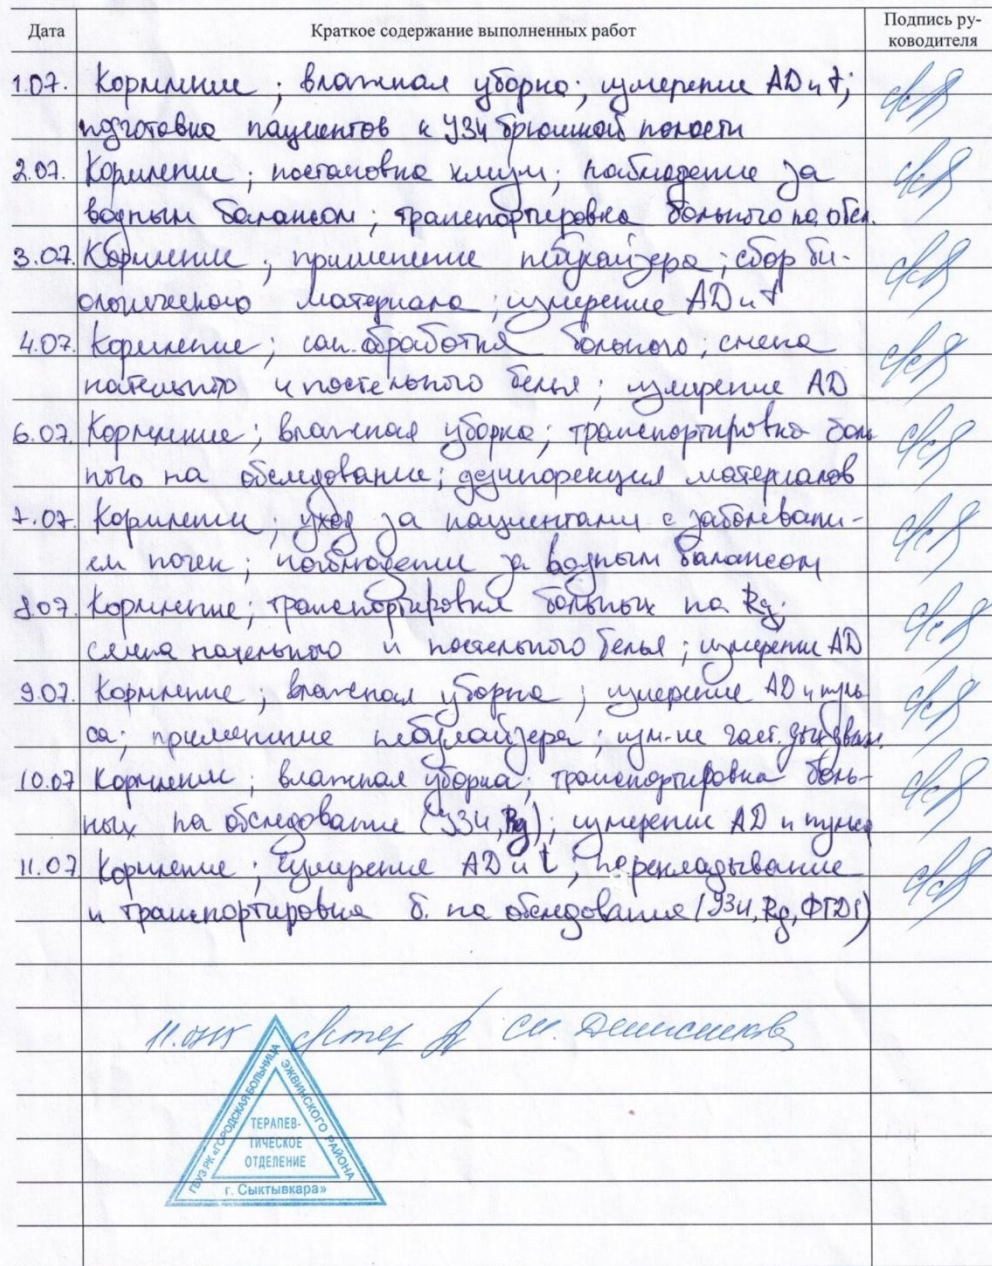 Дата Краткое содержание выполненных работ Подпись ру-
ководителя
1.07. Кормление ; влажная уборка; измерение AD и t;
подготовка пациентов к УЗИ брюшной полости
2.07. Кормление ; постановка клизм; наблюдение за
водным балансом ; транспортировка больного на обсл.
3.07. Кормление ; применение небулайзера ; сбор би-
ологического материала ; измерение AD и t
4.07. Кормление ; сан. обработка больного ; смена
нательного и постельного белья ; измерение AD
6.07. Кормление ; влажная уборка ; транспортировка боль
ного на обследование ; дезинфекция материалов
7.07. Кормление ; уход за пациентами с заболевани-
ем почек ; наблюдение за водным балансом
8.07. Кормление ; транспортировка больных на Rg;
смена нательного и постельного белья ; измерение AD
9.07. Кормление ; влажная уборка ; измерение AD и пуль-
са; применение небулайзера ; изм-ие част. дых. движ.
10.07 Кормление ; влажная уборка ; транспортировка боль-
ных на обследование (УЗИ, Rg) ; измерение AD и пульса
11.07 Кормление ; измерение AD и t ; перекладывание
и транспортировка б. на обследования (УЗИ, Rg, ФГДС)
11.07.15
ГБУЗ РК «ГОРОДСКАЯ БОЛЬНИЦА ЭЖВИНСКОГО РАЙОНА
ТЕРАПЕВ-
ТИЧЕСКОЕ
ОТДЕЛЕНИЕ
г. Сыктывкара»